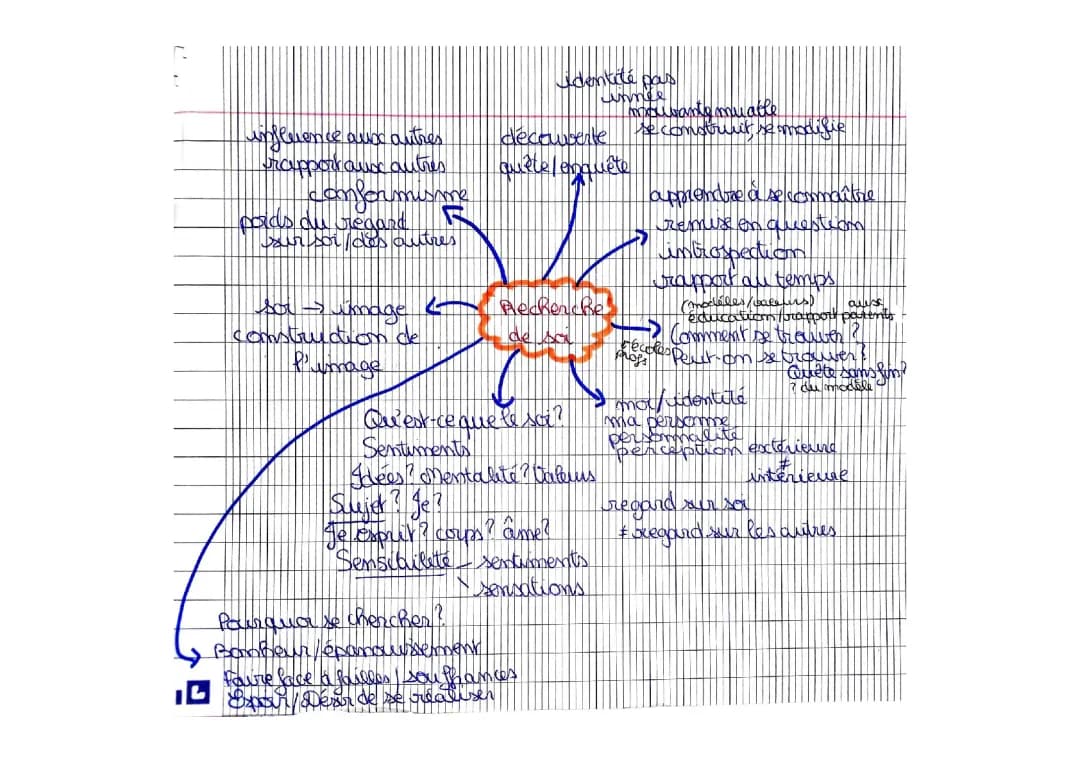 identité pas
innée
mouvante, muable
se construit, se modifie
influence aux autres
rapport aux autres
conformisme
poids du regard
sur soi / des autres
découverte
quête / enquête
apprendre à se connaître
remise en question
introspection
rapport au temps
Recherche
de soi
soi → image
construction de
l'image
(modèles / valeurs)
éducation / rapport aux parents
Comment se trouver ?
écoles
profs
Peut-on se trouver ?
Quête sans fin ?
? du modèle
moi / identité
ma personne
personnalité
perception extérieure
≠
intérieure
regard sur soi
≠ regard sur les autres
Qu'est-ce que le soi ?
Sentiments
Idées ? Mentalité ? Valeurs
Sujet ? Je ?
Je esprit ? corps ? âme ?
Sensibilité - sentiments
\ sensations
Pourquoi se chercher ?
Bonheur / épanouissement
Faire face à failles / souffrances
Espoir / Désir de se réaliser